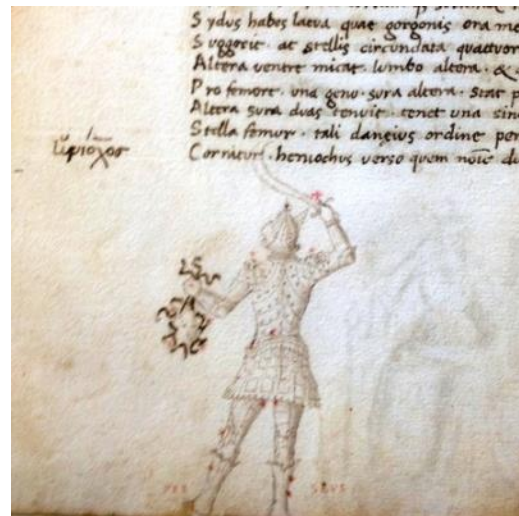 Sydus habes laeva quae gorgonis ora me
Suggerit. ac stellis circundata quattuor
Altera ventre micat. lumbo altera. &
Pro femore. una genu. sura altera. stat p
Altera sura duas tenuit. tenet una sin
Stella femur. tali daneius ordine per
Cernitur. heniochus verso quem
PER SEUS